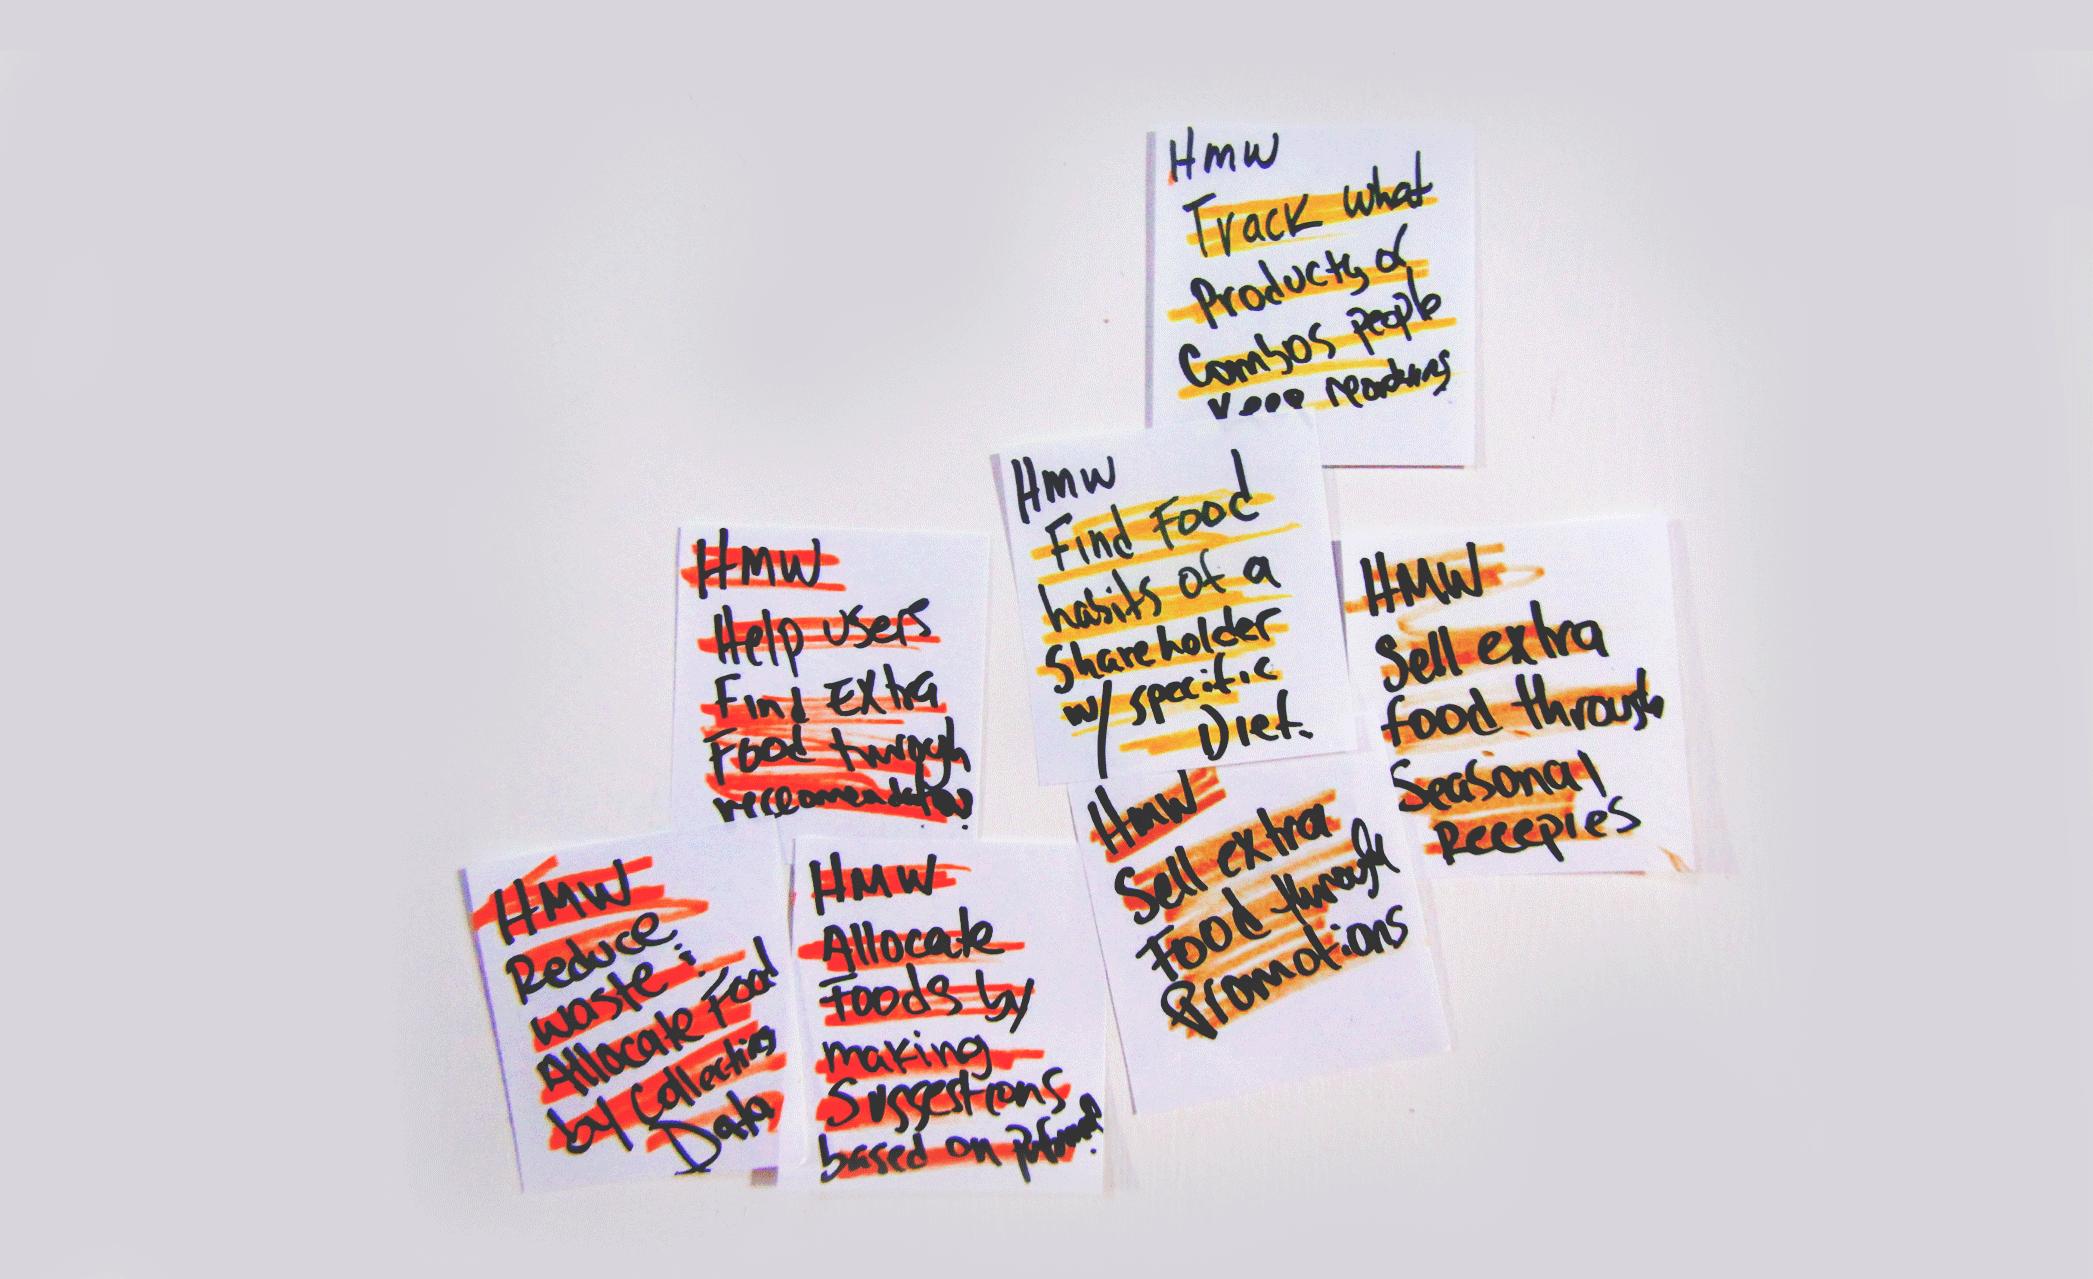 HMW
Track what
Products &
Combos people
Keep reordering
HMW
Find Food
habits of a
Shareholder
w/ specific
Diet.
HMW
Help users
Find Extra
Food through
HMW
Sell extra
food through
Seasonal
Recepies
HMW
Sell extra
Food through
Promotions
HMW
Reduce
waste:
Allocate Food
by Collecting
Data
HMW
Allocate
Foods by
making
Suggestions
based on